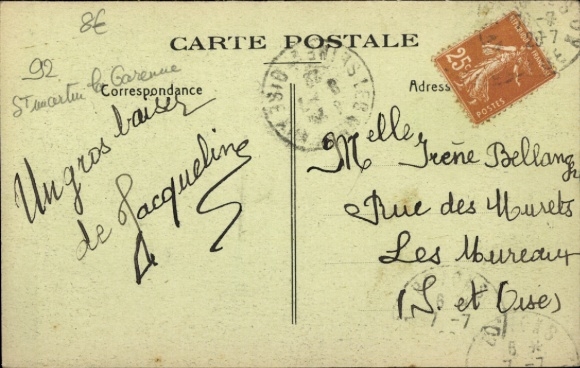 8€
92
St martin la Garenne
CARTE POSTALE
Correspondance
Adres
25c
POSTES
Un gros baiser
de Jacqueline
Melle Irène Bellang
Rue des Murets
Les Mureaux
(S. et Oise)
6
7-7
6 *
7-7